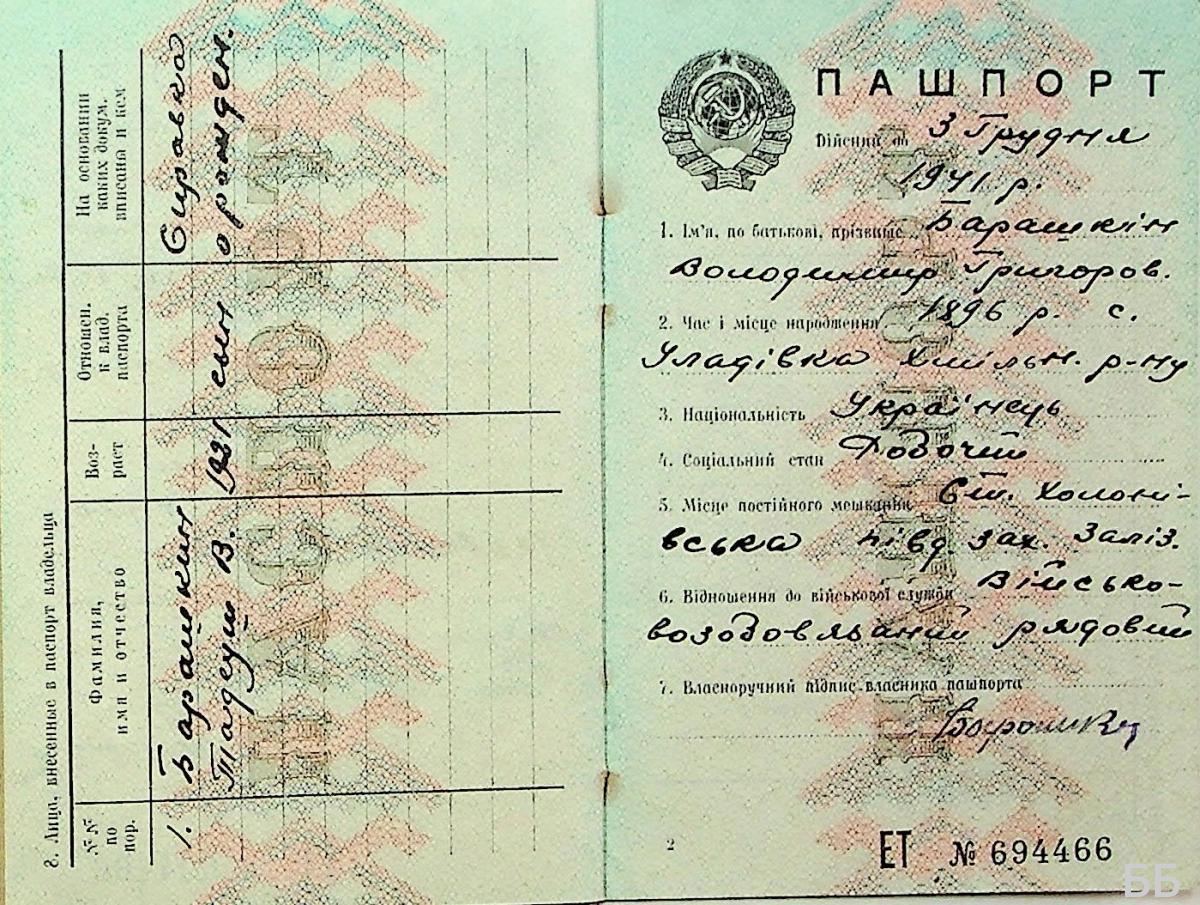 8. Лица, внесенные в паспорт владельца
№№ по пор.
Фамилия, имя и отчество
Воз-раст
Отношен. к влад. паспорта
На основании каких докум. вписана и кем
1.
Барашкин
Тадеуш В.
1921
сын
Справка
о рожден.
ПАШПОРТ
Дійсний до 3 Грудня
1941 р.
1. Ім'я, по батькові, прізвище Барашкін
Володимир Григоров.
2. Час і місце народження 1896 р. с.
Уладівка Хмільн. р-ну
3. Національність Українець
4. Соціальний стан Робочий
5. Місце постійного мешкання Ст. Холоні-
вська півд. зах. заліз.
6. Відношення до військової служби Військо-
возобовязаний рядовий
7. Власноручний підпис власника пашпорта
2
ЕТ № 694466
ББ